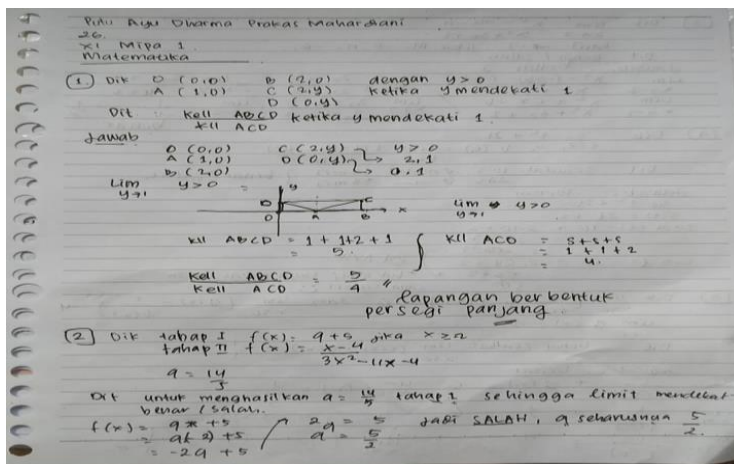 Putu Ayu Dharma Prokas Mahardiani
26.
XI MIPA 1
Matematika
1 Dik O (0,0) B (2,0) dengan y > 0
A (1,0) C (2,y) ketika y mendekati 1
D (0,y)
Dit Kell ABCD ketika y mendekati 1.
Kll ACD
Jawab
O (0,0) C (2,y) y > 0
A (1,0) D (0,y) 2,1
B (2,0) 0,1
Lim y > 0 =
y→1
y
D C
O A B x
Lim y > 0
y→1
Kll ABCD = 1 + 1+2 + 1
= 5.
Kll ACD = s+s+s
= 1 + 1 + 2
= 4.
Kell ABCD = 5
Kell ACD 4 //
lapangan berbentuk
persegi panjang
2 Dik tahap I f(x) = a + 5 jika x ≥ 2
tahap II f(x) = x - 4
3x² - 11x - 4
a = 14
5
Dit untuk menghasilkan a = 14/5 tahap 2 sehingga limit mendekat
benar / salah.
f(x) = ax + 5 2a = 5 Jadi SALAH, a seharusnya 5/2.
= a(-2) + 5 a = 5/2
= -2a + 5